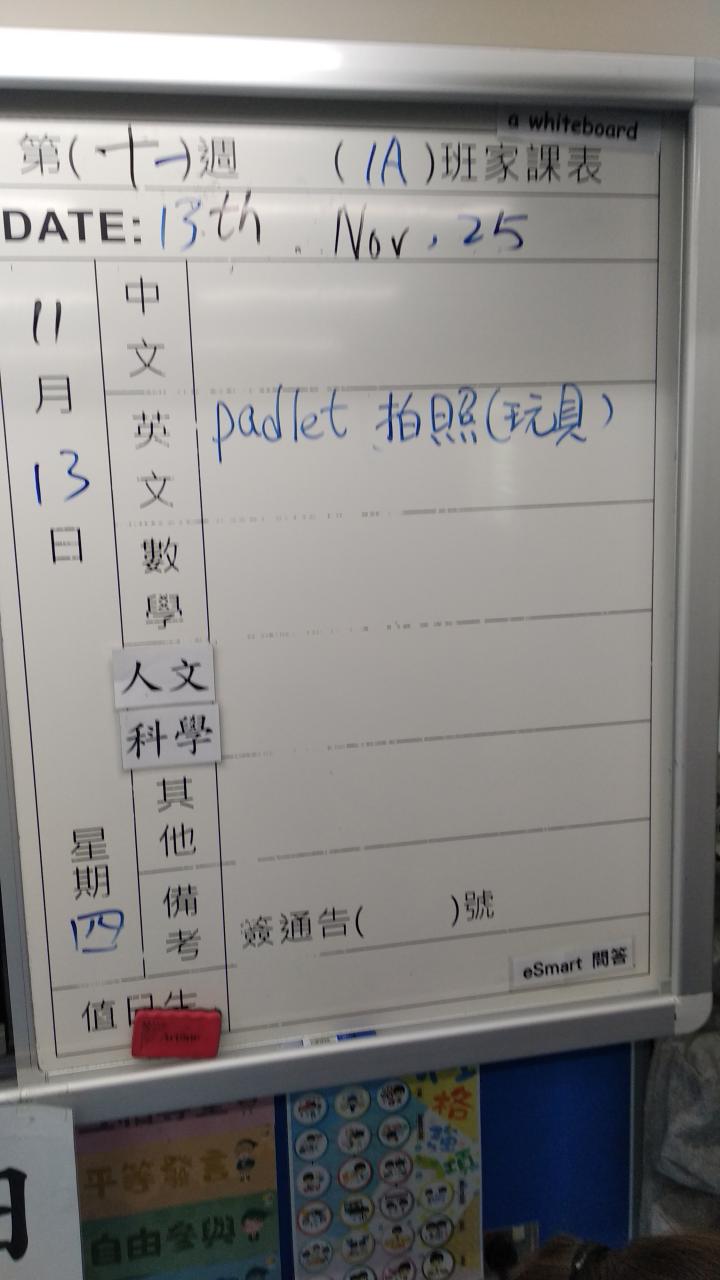 a whiteboard
第(十一)週 (1A)班家課表
DATE: 13th. Nov, 25
11月13日
星期四
中文
英文 padlet 拍照(玩具)
數學
人文
科學
其他
備考 簽通告( )號
eSmart 問答
值日生
Artline
平等發言
自由參與
格
強
項